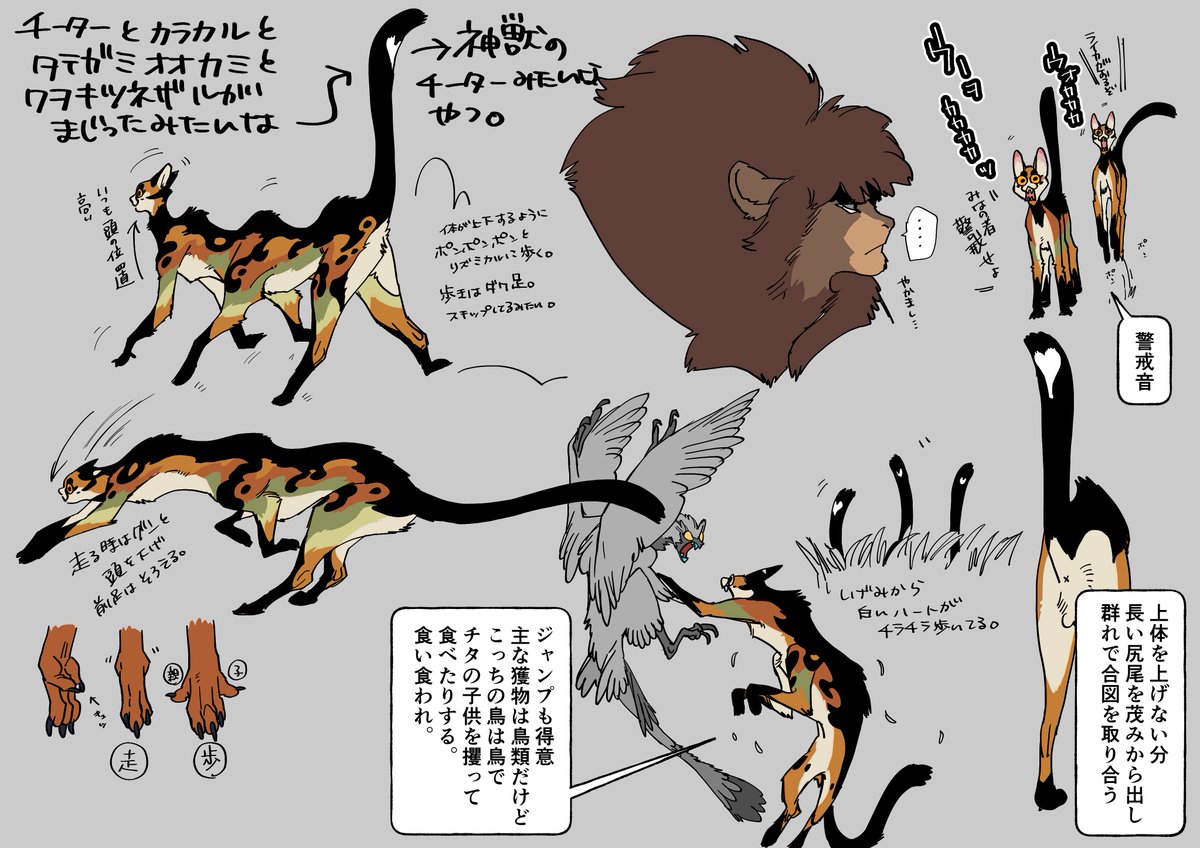 チーターとカラカルと
タテガミオオカミと
ワヲキツネザルが
まじったみたいな
→神獣の
チーターみたいな
やつ。
いつも頭の位置
高い
体が上下するように
ポンポンポンと
リズミカルに歩く。
歩きはダク足。
スキップしてるみたい。
‥‥
やかまし…
ウーヲ
カカカカッ
みなの者
警戒せよ
ウォカカカ
ライカがおるぞ
ポン
ポン
警戒音
走る時はグンと
頭を下げ
前足はそろえる。
キュッ
走
親
子
歩
ジャンプも得意
主な獲物は鳥類だけど
こっちの鳥は鳥で
チタの子供を攫って
食べたりする。
食い食われ。
しげみから
白いハートが
チラチラ歩いてる。
上体を上げない分
長い尻尾を茂みから出し
群れで合図を取り合う